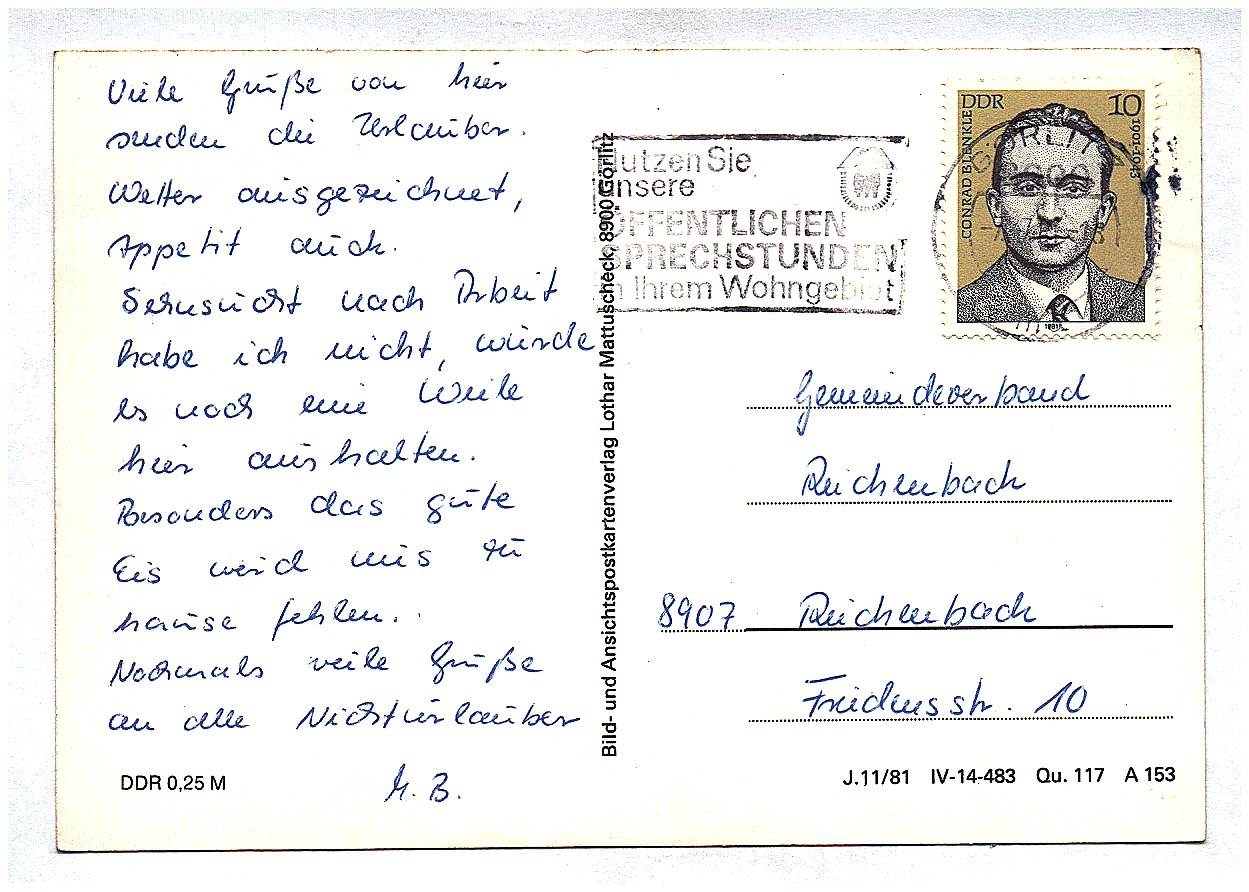 Viele Grüße von hier
senden die Urlauber.
Wetter ausgezeichnet,
Appetit auch.
Sehnsucht nach Arbeit
habe ich nicht, würde
es noch eine Weile
hier aushalten.
Besonders das gute
Eis wird uns zu
hause fehlen.
Nochmals viele Grüße
an alle Nichturlauber
M. B.
DDR 0,25 M
Bild- und Ansichtspostkartenverlag Lothar Mattuscheck, 8900 Görlitz
Nutzen Sie
unsere
ÖFFENTLICHEN
SPRECHSTUNDEN
in Ihrem Wohngebiet
DDR 10
CONRAD BLENKLE
1901-1943
GÖRLITZ
1981
Gemeindeverband
Reichenbach
8907 Reichenbach
Friedensstr. 10
J.11/81 IV-14-483 Qu. 117 A 153